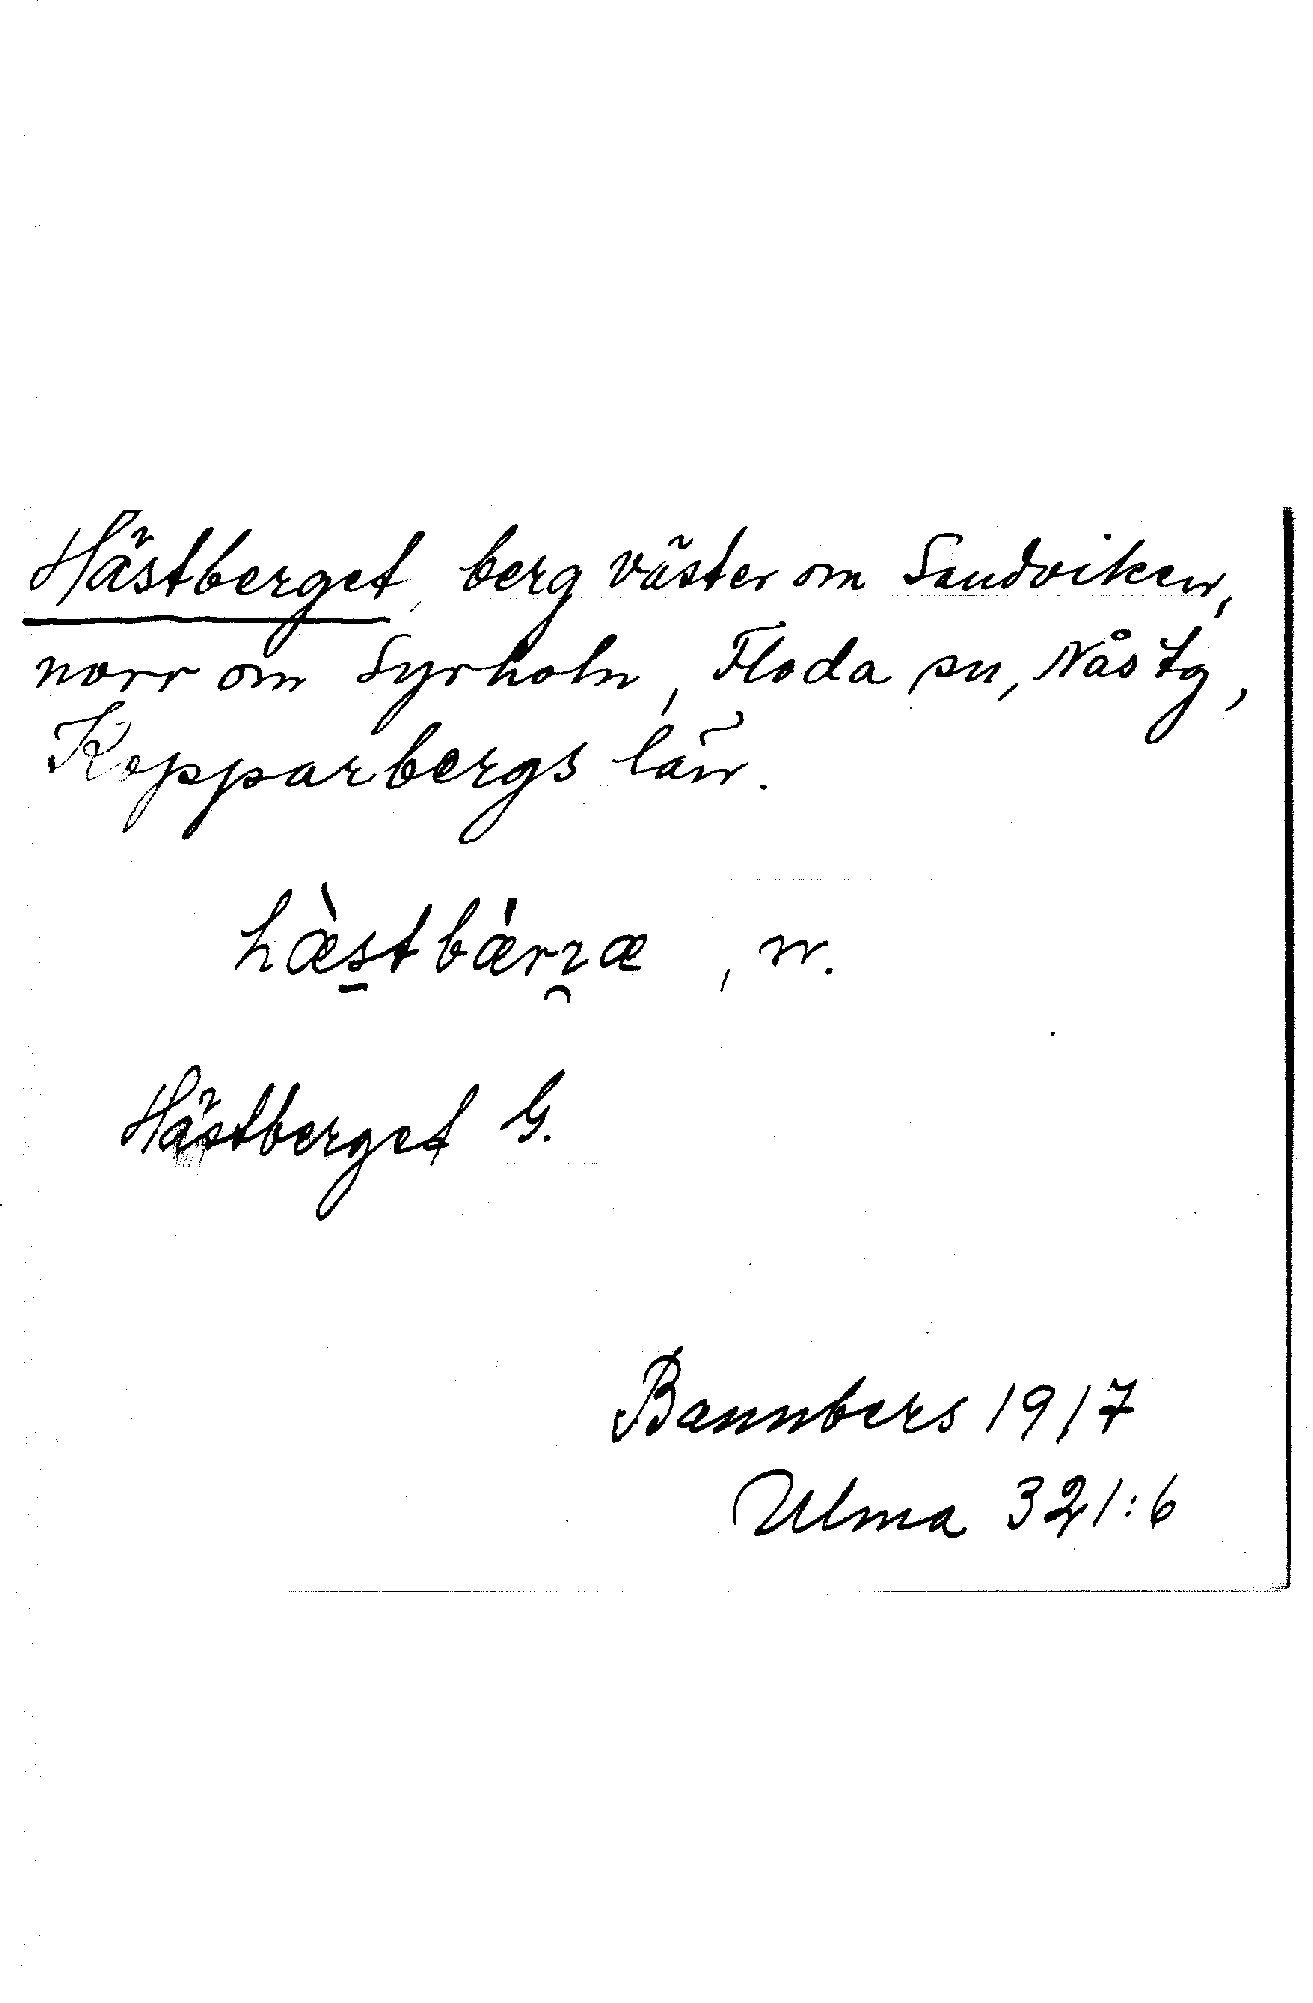 Hästberget, berg väster om Sandviken,
norr om Syrholn, Floda sn, Nås tg,
Kopparbergs län.
hæ̀stbæ̀rɿæ, n.
Hästberget G.
Bannbers 1917
Ulma 321:6